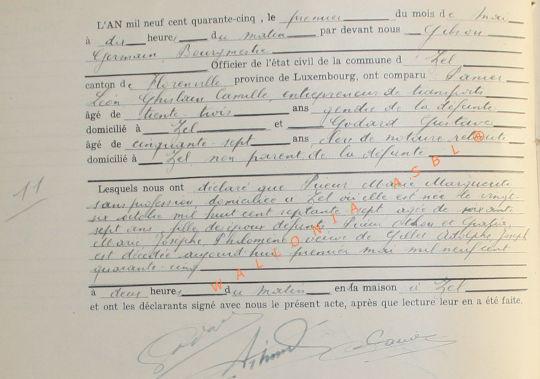 L'AN mil neuf cent quarante-cinq, le premier du mois de mai
à dix heures du matin par devant nous Gihou
Germain Bourgmestre
Officier de l'état civil de la commune d
canton de Florenville province de Luxembourg, ont comparu
Léon Ghislain Camille, entrepreneur de transports
âgé de trente trois ans gendre de la défunte
domicilié à et Godard Gustave
âgé de cinquante sept ans clerc de notaire retraité
domicilié à non parent de la défunte
11
Lesquels nous ont déclaré que Marie Marguerite
sans profession, domiciliée à où elle est née le vingt-
six octobre mil huit cent septante sept âgée de soixante
sept ans fille de époux défunts et
Marie Joseph Philomène veuve de Gillet Adolphe Joseph
est décédée aujourd'hui premier mai mil neuf cent
quarante cinq
à deux heures du matin en sa maison à
et ont les déclarants signé avec nous le présent acte, après que lecture leur en a été faite.
WALLONIA ASBL